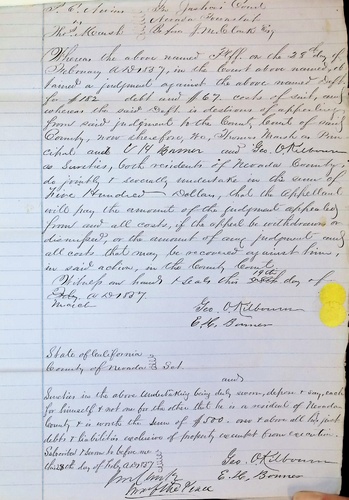 In Justice's Court
Nevada Township
Thos. Marsh Before J. M. Clark Esq
Whereas the above named Plff. on the 28th day of
February A D 1857, in the Court above named ob-
tained a judgment against the above named Deft
for $182 debt and $67. costs of suit, and
whereas the said Deft is desirous of appealing
from said judgment to the County Court of said
County, now therefore, we, Thomas Marsh as Prin
cipal and E H Gaylord and Geo. O Kilbourn
as sureties, both residents of Nevada County
do jointly & severally undertake in the sum of
Five Hundred Dollars, that the Appellant
will pay the amount of the judgment appealed
from and all costs, if the appeal be withdrawn or
dismissed, or the amount of any judgment and
all costs that may be recovered against him,
in said action, in the County Court.
Witness our hands & seals this 19th day of
March A D 1857
Geo. O Kilbourn
State of California
County of Nevada Sct.
and
Sureties in the above undertaking being duly sworn, depose & say, each
for himself & not one for the other that he is a resident of Nevada
County & is worth the sum of $500. over & above all his just
debts & liabilities exclusive of property exempt from execution.
Subscribed & sworn to before me
this day of Feb'y, A D 1857
Geo. O Kilbourn